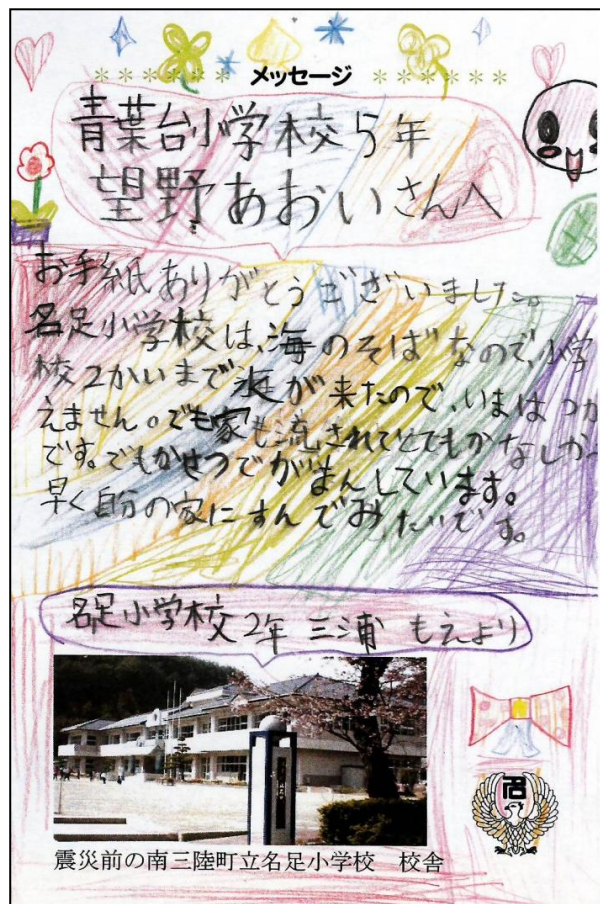 メッセージ
青葉台小学校5年
望野あおいさんへ
お手紙ありがとうございました。
名足小学校は、海のそばなので、小学
校2かいまで波が来たので、いまはつか
えません。でも家も流されてとてもかなしか
です。でもかせつでがまんしています。
早く自分の家にすんでみたいです。
名足小学校2年 三浦 もえより
震災前の南三陸町立名足小学校 校舎